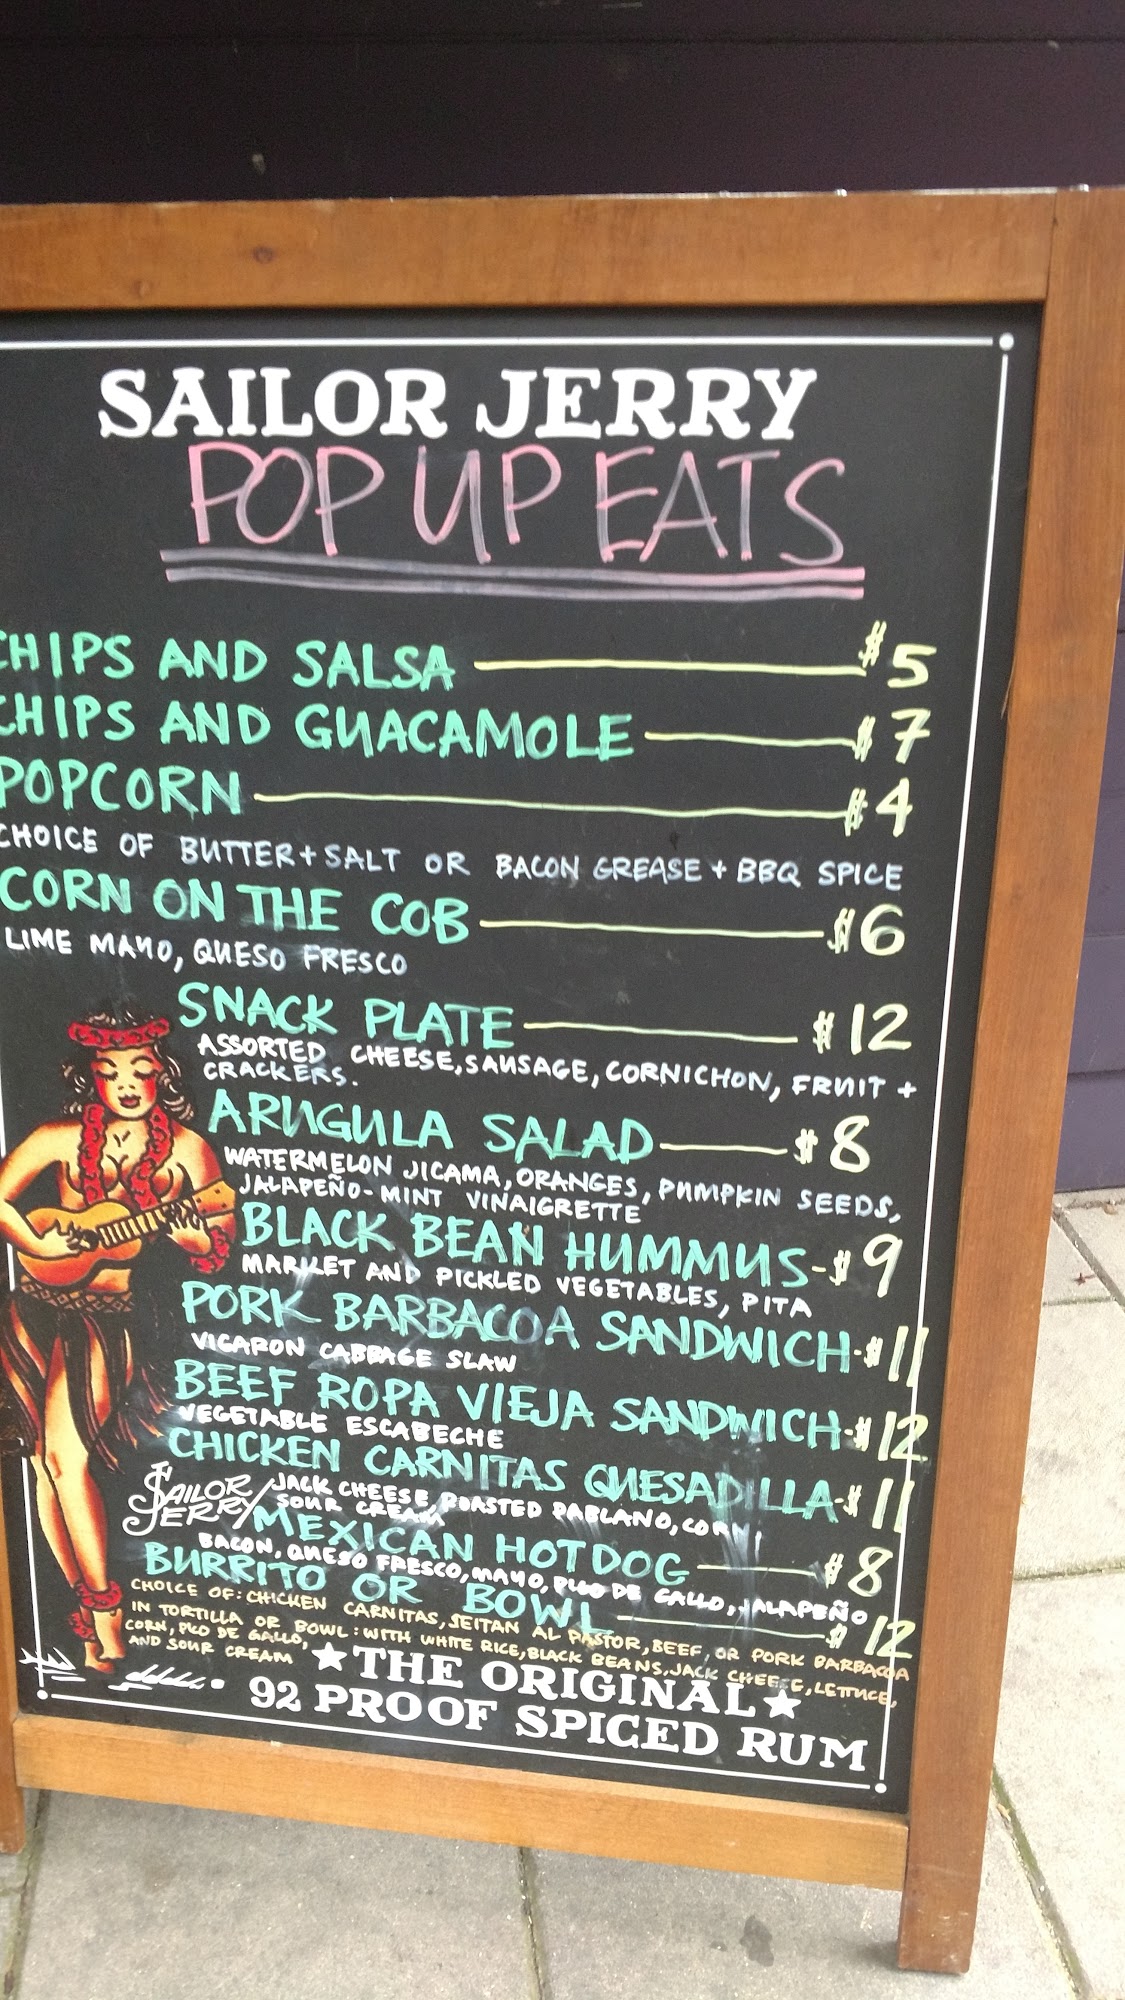 SAILOR JERRY
POP UP EATS
CHIPS AND SALSA $5
CHIPS AND GUACAMOLE $7
POPCORN $4
CHOICE OF BUTTER + SALT OR BACON GREASE + BBQ SPICE
CORN ON THE COB $6
LIME MAYO, QUESO FRESCO
SNACK PLATE $12
ASSORTED CHEESE, SAUSAGE, CORNICHON, FRUIT +
CRACKERS.
ARUGULA SALAD $8
WATERMELON JICAMA, ORANGES, PUMPKIN SEEDS,
JALAPEÑO-MINT VINAIGRETTE
BLACK BEAN HUMMUS - $9
MARKET AND PICKLED VEGETABLES, PITA
PORK BARBACOA SANDWICH - $11
VIGARON CABBAGE SLAW
BEEF ROPA VIEJA SANDWICH - $12
VEGETABLE ESCABECHE
CHICKEN CARNITAS QUESADILLA - $11
JACK CHEESE, ROASTED PABLANO, CORN,
SOUR CREAM
SAILOR
JERRY
MEXICAN HOTDOG $8
BACON, QUESO FRESCO, MAYO, PICO DE GALLO, JALAPEÑO
BURRITO OR BOWL $12
CHOICE OF: CHICKEN CARNITAS, SEITAN AL PASTOR, BEEF, OR PORK BARBACOA
IN TORTILLA OR BOWL: WITH WHITE RICE, BLACK BEANS, JACK CHEESE, LETTUCE,
CORN, PICO DE GALLO,
AND SOUR CREAM
★THE ORIGINAL★
92 PROOF SPICED RUM